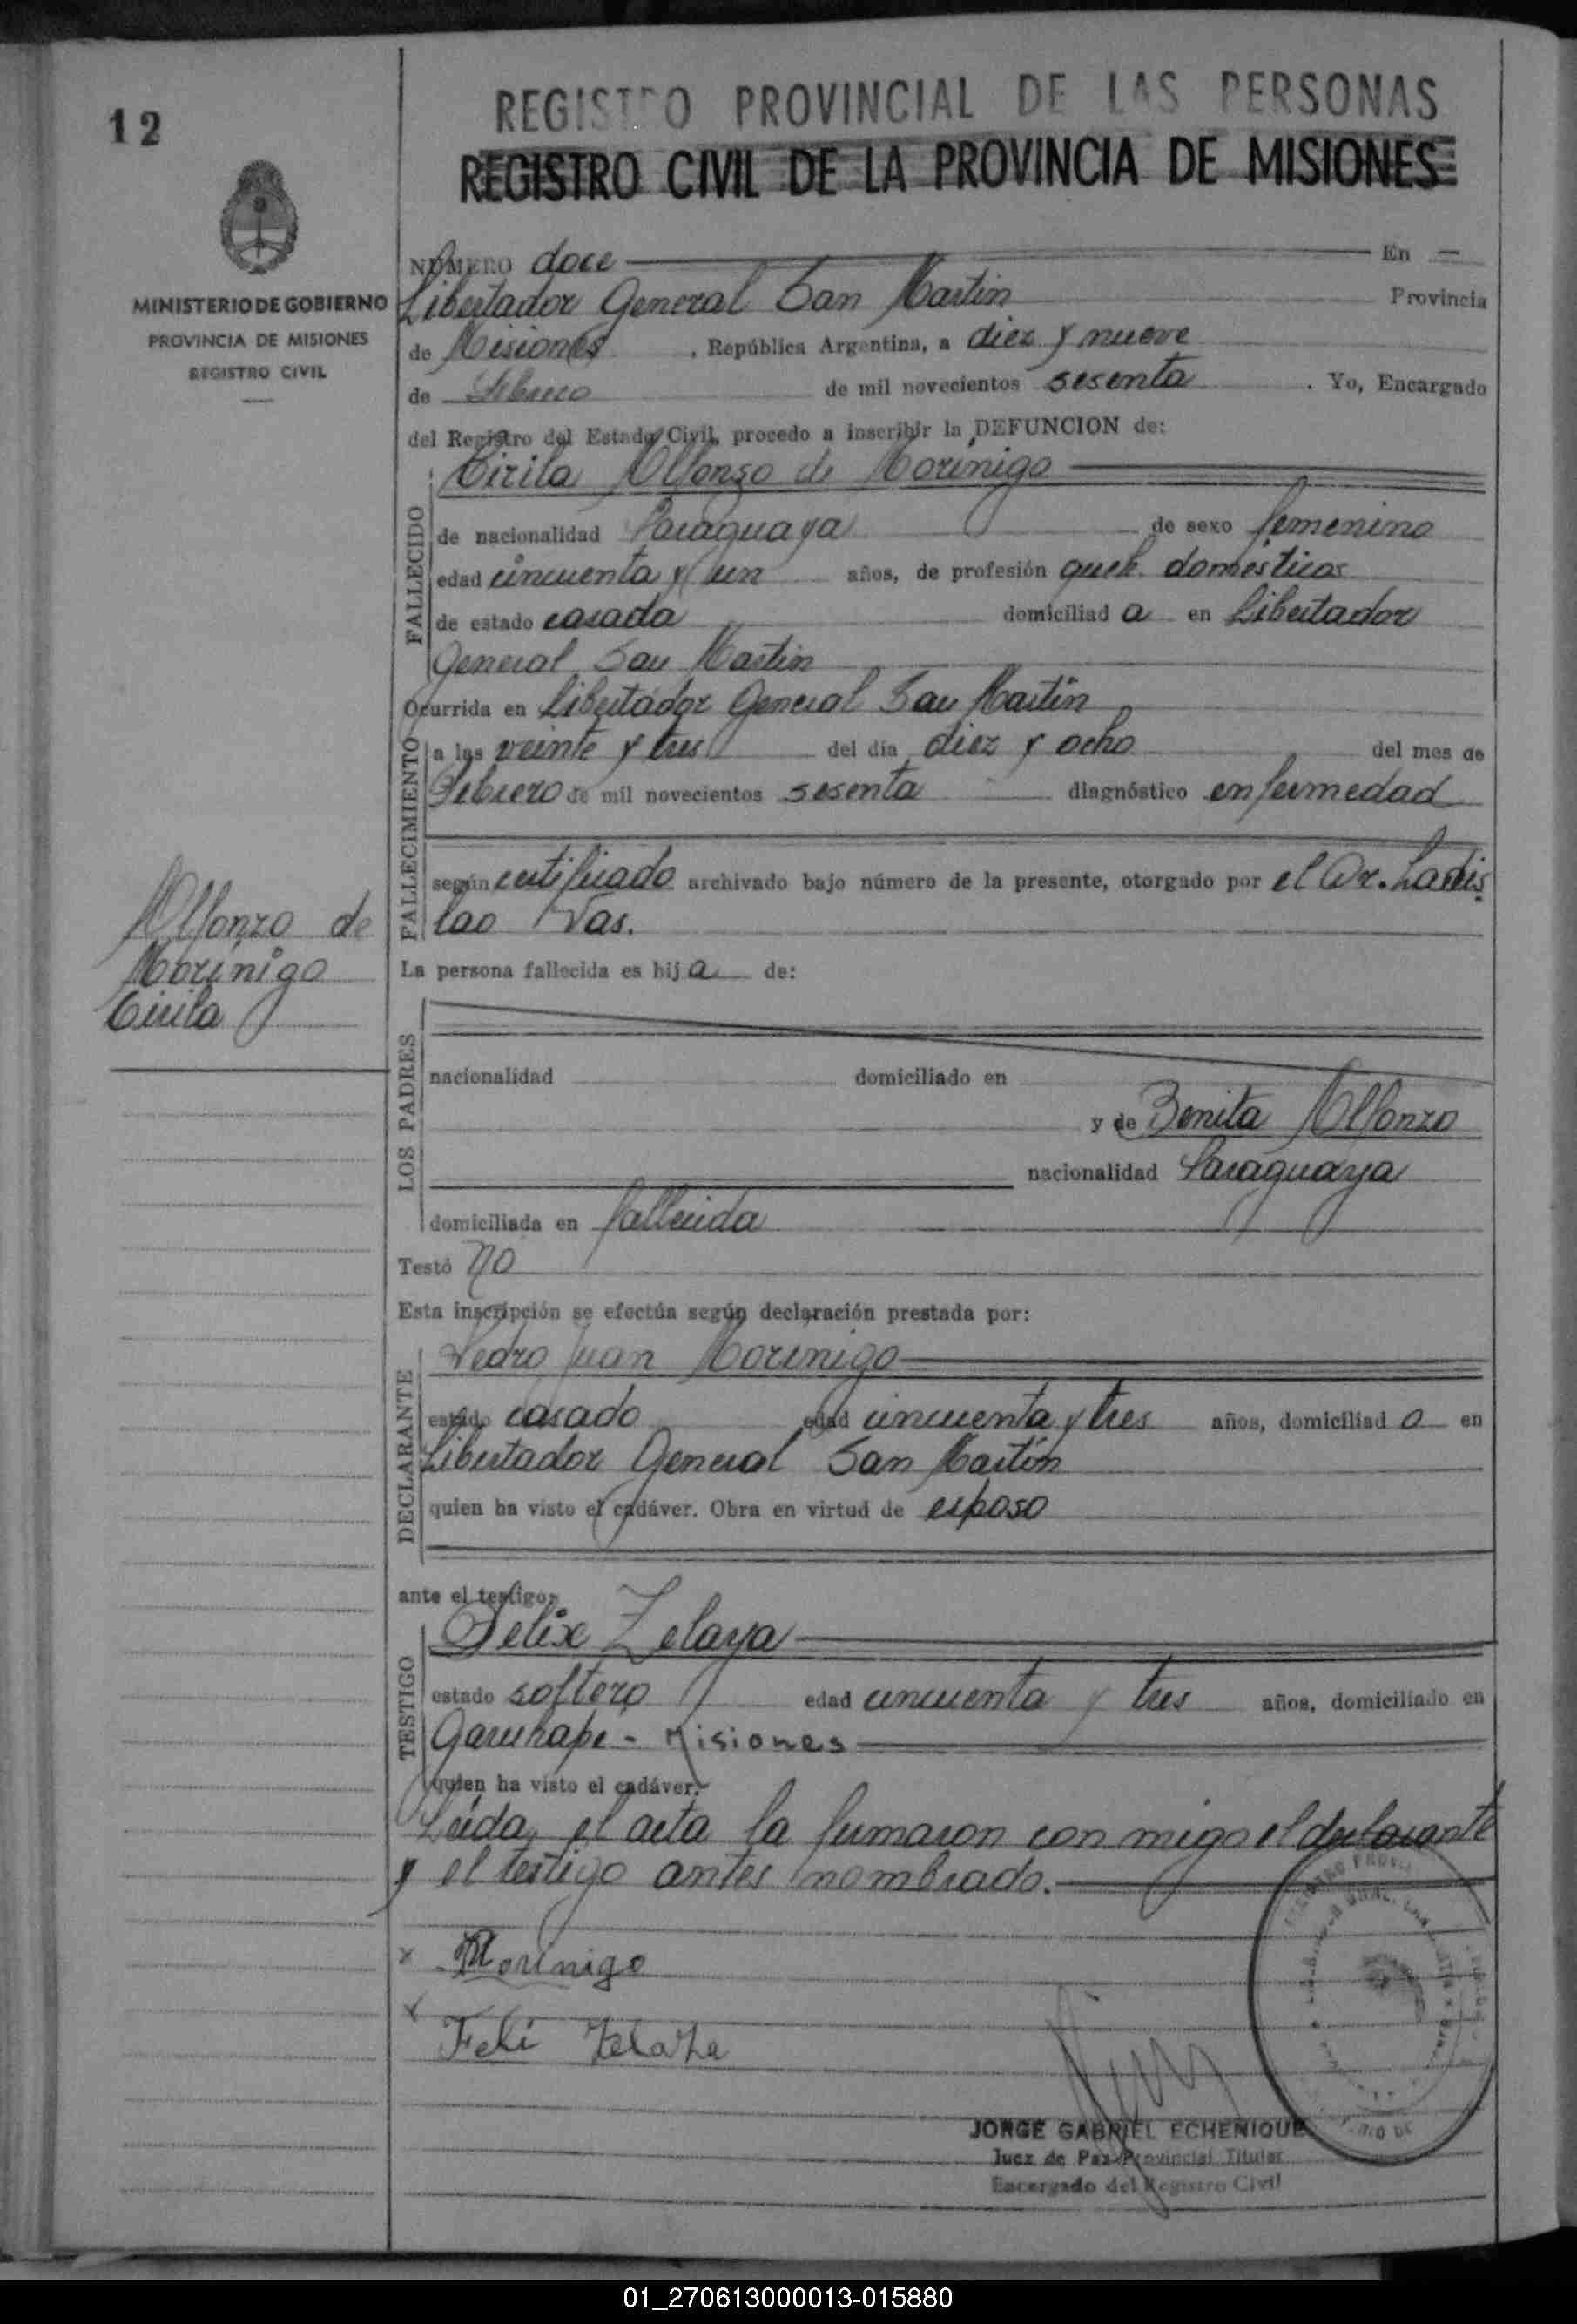 12
MINISTERIO DE GOBIERNO
PROVINCIA DE MISIONES
REGISTRO CIVIL
REGISTRO PROVINCIAL DE LAS PERSONAS
REGISTRO CIVIL DE LA PROVINCIA DE MISIONES
NUMERO doce En
Libertador General San Martin Provincia
de Misiones , República Argentina, a diez y nueve
de Febrero de mil novecientos sesenta . Yo, Encargado
del Registro del Estado Civil, procedo a inscribir la DEFUNCION de:
FALLECIDO
Cirila Alfonzo de Morínigo
de nacionalidad Paraguaya de sexo femenino
edad cincuenta y un años, de profesión queh. domésticos
de estado casada domiciliad a en Libertador
General San Martin
FALLECIMIENTO
Ocurrida en Libertador General San Martín
a las veinte y tres del día diez y ocho del mes de
Febrero de mil novecientos sesenta diagnóstico enfermedad
según certificado archivado bajo número de la presente, otorgado por el Dr. Ladis
lao Vas.
Alfonzo de
Morínigo
Cirila
La persona fallecida es hij a de:
LOS PADRES
nacionalidad domiciliado en
y de Benita Alfonzo
nacionalidad Paraguaya
domiciliada en fallecida
Testó no
Esta inscripción se efectúa según declaración prestada por:
DECLARANTE
Pedro Juan Morínigo
estado casado edad cincuenta y tres años, domiciliad o en
Libertador General San Martín
quien ha visto el cadáver. Obra en virtud de esposo
ante el testigo:
TESTIGO
Felix Zelaya
estado soltero edad cincuenta y tres años, domiciliado en
Garuhape - Misiones
quien ha visto el cadáver.
Leída, el acta la firmaron con migo el declarante
y el testigo antes nombrado.
x Morínigo
x
Feli Zelaya
JORGE GABRIEL ECHENIQUE
Juez de Paz Provincial Titular
Encargado del Registro Civil
01_270613000013-015880